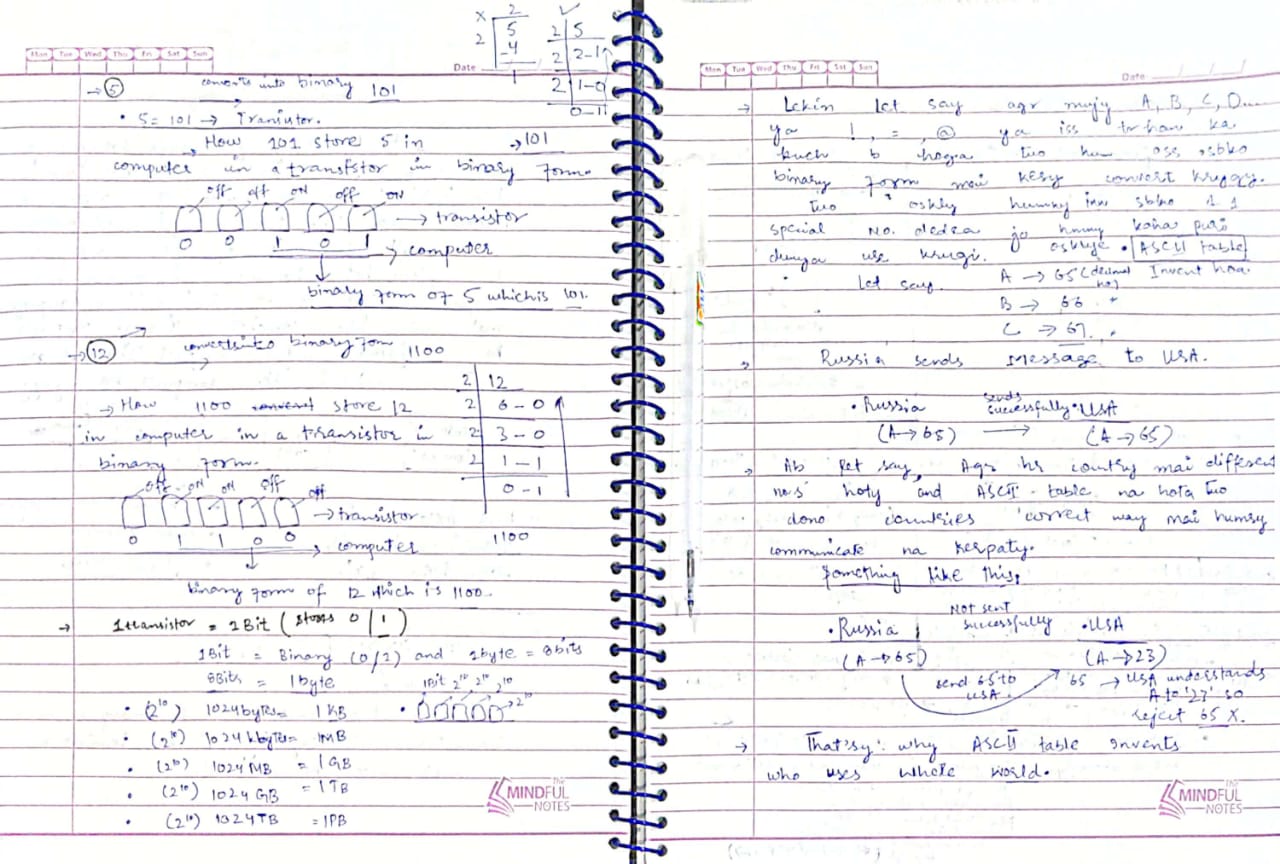 Mon Tue Wed Thu Fri Sat Sun
Date
x 2
2 5
-4
1
2 5
2 2-1
2 1-0
0-1
→ 5 converts into binary 101
• 5 = 101 → Transistor.
→ How 101 store 5 in → 101
computer in a transfstor in binary form.
off off ON off ON
→ transistor
0 0 1 0 1
→ computer
binary form of 5 which is 101.
→ 12 converts into binary form 1100
2 12
2 6-0
2 3-0
2 1-1
0-1
1100
→ How 1100 store 12
in computer in a transistor in
binary form.
off ON ON off off
→ transistor
0 1 1 0 0
→ computer
binary form of 12 which is 1100.
→ 1 transistor = 1 Bit (stores 0/1)
1Bit = Binary (0/1) and 1byte = 8bits
8Bits = 1byte
1Bit 2¹⁰ 2¹⁰ 2¹⁰
→ 2¹⁰
• (2¹⁰) 1024bytes = 1 KB
• (2¹⁰) 1024 kbytes = 1MB
• (2¹⁰) 1024 MB = 1 GB
• (2¹⁰) 1024 GB = 1 TB
• (2¹⁰) 1024TB = 1PB
The
MINDFUL
NOTES
Mon Tue Wed Thu Fri Sat Sun
Date
→ Lekin let say agr mujy A, B, C, D...
ya ! , = , @ ya iss trhan ka
kuch b hoga tuo hum oss sbko
binary form mai kesy convert krygy.
tuo oskly humny inn sbko 1 1
special No. dedea jo humny kaha puri
dunya use krugi. oskliye • ASCII table
Invent hoa.
• Let say. A → 65 (decimal no)
B → 66 "
C → 67. "
→ Russia sends Message to USA.
• Russia sends successfully • USA
(A → 65) → (A → 65)
→ Ab let say, Agr hr country mai different
no's hoty and ASCII table na hota tuo
dono countries correct way mai humsy
communicate na kerpaty.
Something like this,
• Russia Not sent successfully • USA
(A → 65) (A → 23)
send 65 to USA.
65 → USA understands
A to '23' so
reject 65 X.
→ That'sy why ASCII table Invents
who uses whole world.
The
MINDFUL
NOTES